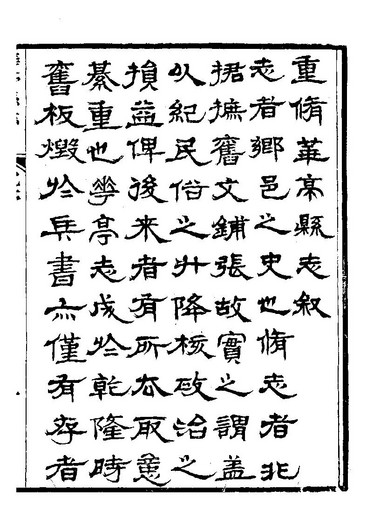 重脩華亭縣志叙
志者鄉邑之史也脩志者非
捃摭舊文鋪張故實之謂蓋
以紀民俗之升降核政治之
損益俾後来者有所去取意
綦重也華亭志成於乾隆時
舊板燬於兵書亦僅有存者